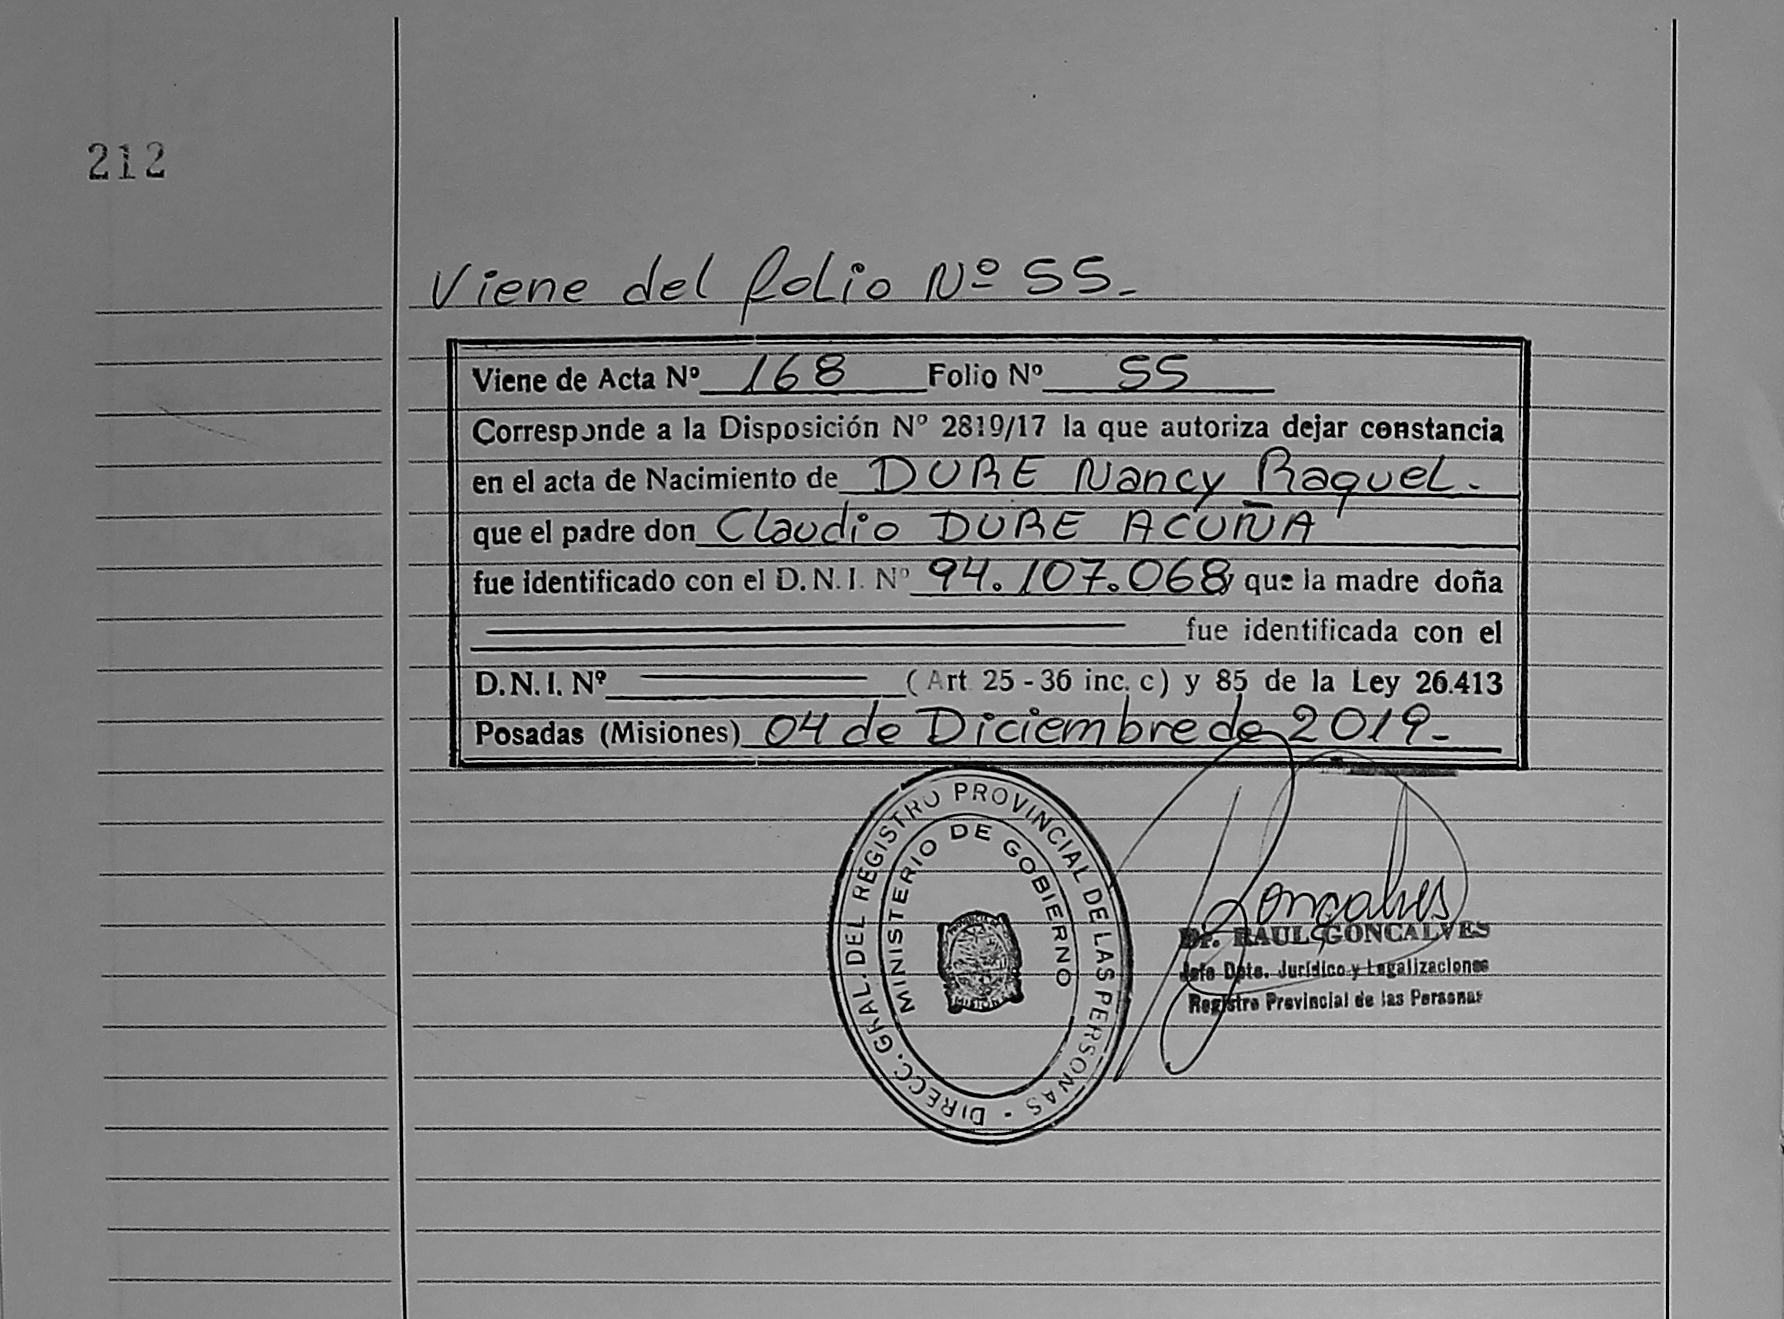 212
Viene del folio Nº 55.-
Viene de Acta Nº 168 Folio Nº 55
Corresponde a la Disposición Nº 2819/17 la que autoriza dejar constancia
en el acta de Nacimiento de DURE Nancy Raquel.
que el padre don Claudio DURE ACUÑA
fue identificado con el D.N.I. Nº 94.107.068 y que la madre doña
fue identificada con el
D.N.I. Nº (Art 25 - 36 inc. c) y 85 de la Ley 26.413
Posadas (Misiones) 04 de Diciembre de 2019.-
DIRECC. GRAL. DEL REGISTRO PROVINCIAL DE LAS PERSONAS -
MINISTERIO DE GOBIERNO
MISIONES
Goncalves
Dr. RAUL GONCALVES
Jefe Dpto. Jurídico y Legalizaciones
Registro Provincial de las Personas